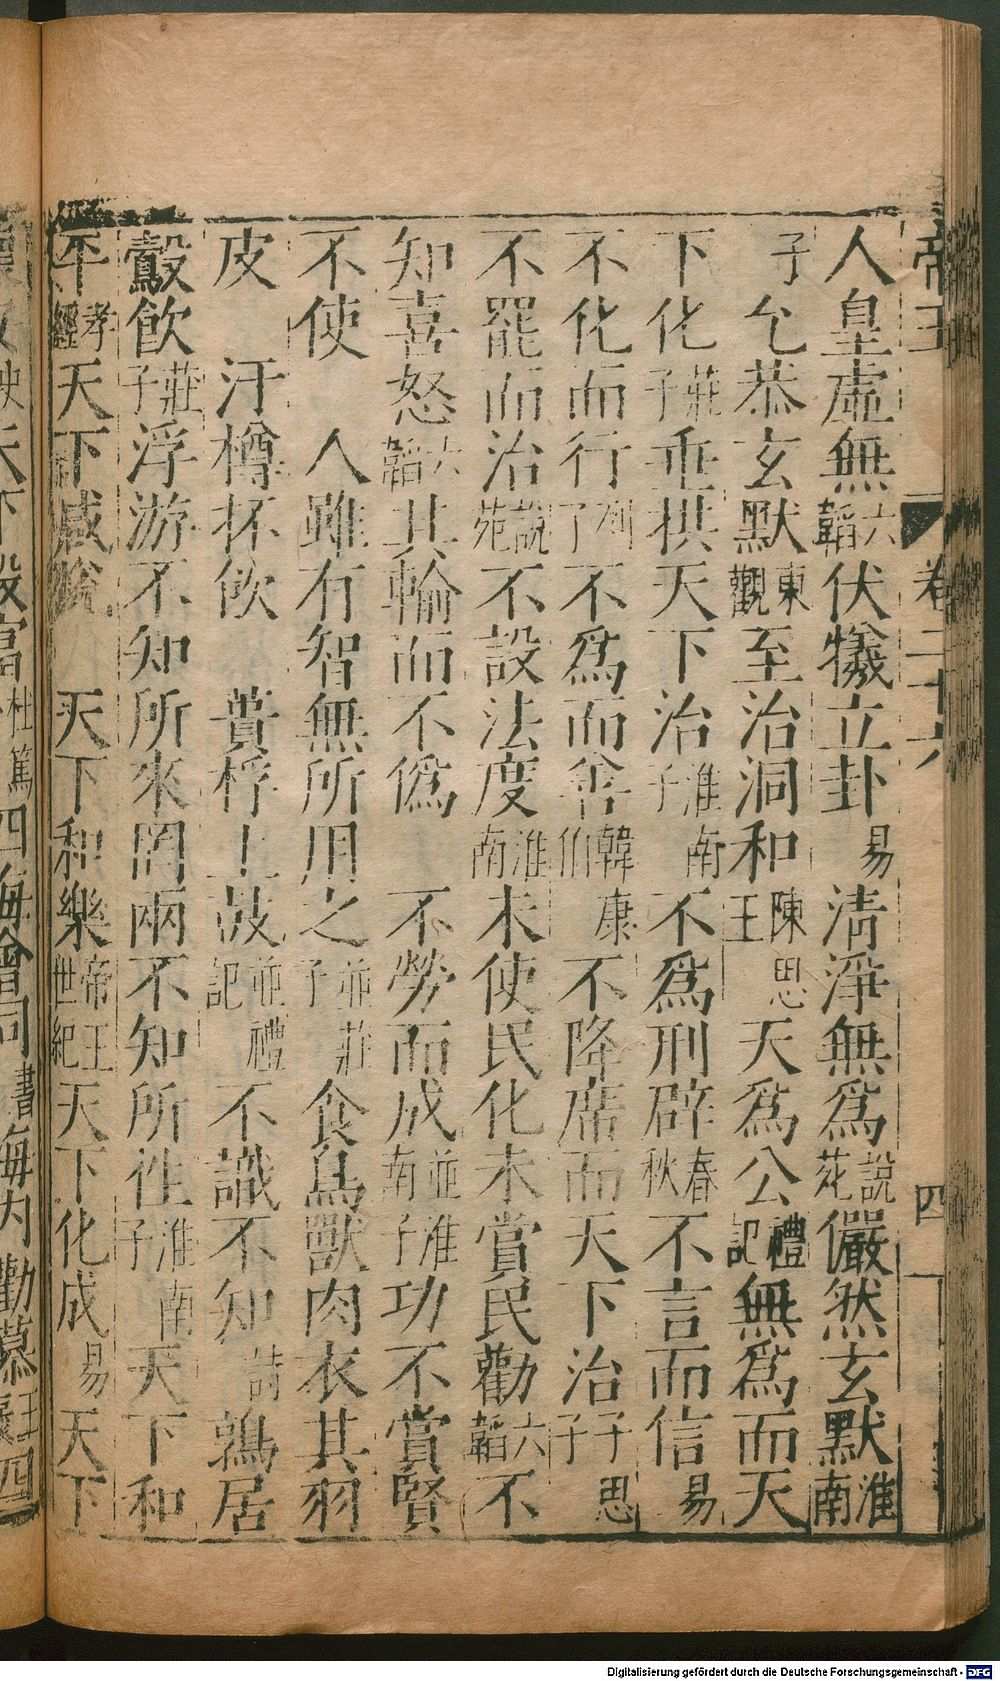 帝王 卷二十六 四
人皇虛無六韜伏犧立卦易清淨無爲說苑儼然玄默淮南
子允恭玄默東觀至治洞和陳思王天爲公禮記無爲而天
下化莊子垂拱天下治淮南子不爲刑辟春秋不言而信易
不化而行列子不爲而善韓康伯不降席而天下治子思子
不罷而治說苑不設法度淮南未使民化未賞民勸六韜不
知喜怒六韜其輪而不僞不勞而成並淮南子功不賞賢
不使人雖有智無所用之並莊子食鳥獸肉衣其羽
皮汙樽抔飲蕢桴土鼓並禮記不識不知詩鶉居
鷇飲莊子浮游不知所來罔兩不知所往淮南子天下和
平孝經天下咸天下和樂帝王世紀天下化成易天下
天下殷富杜篤四海會同書海內勸慕王襃四
Digitalisierung gefördert durch die Deutsche Forschungsgemeinschaft - DFG